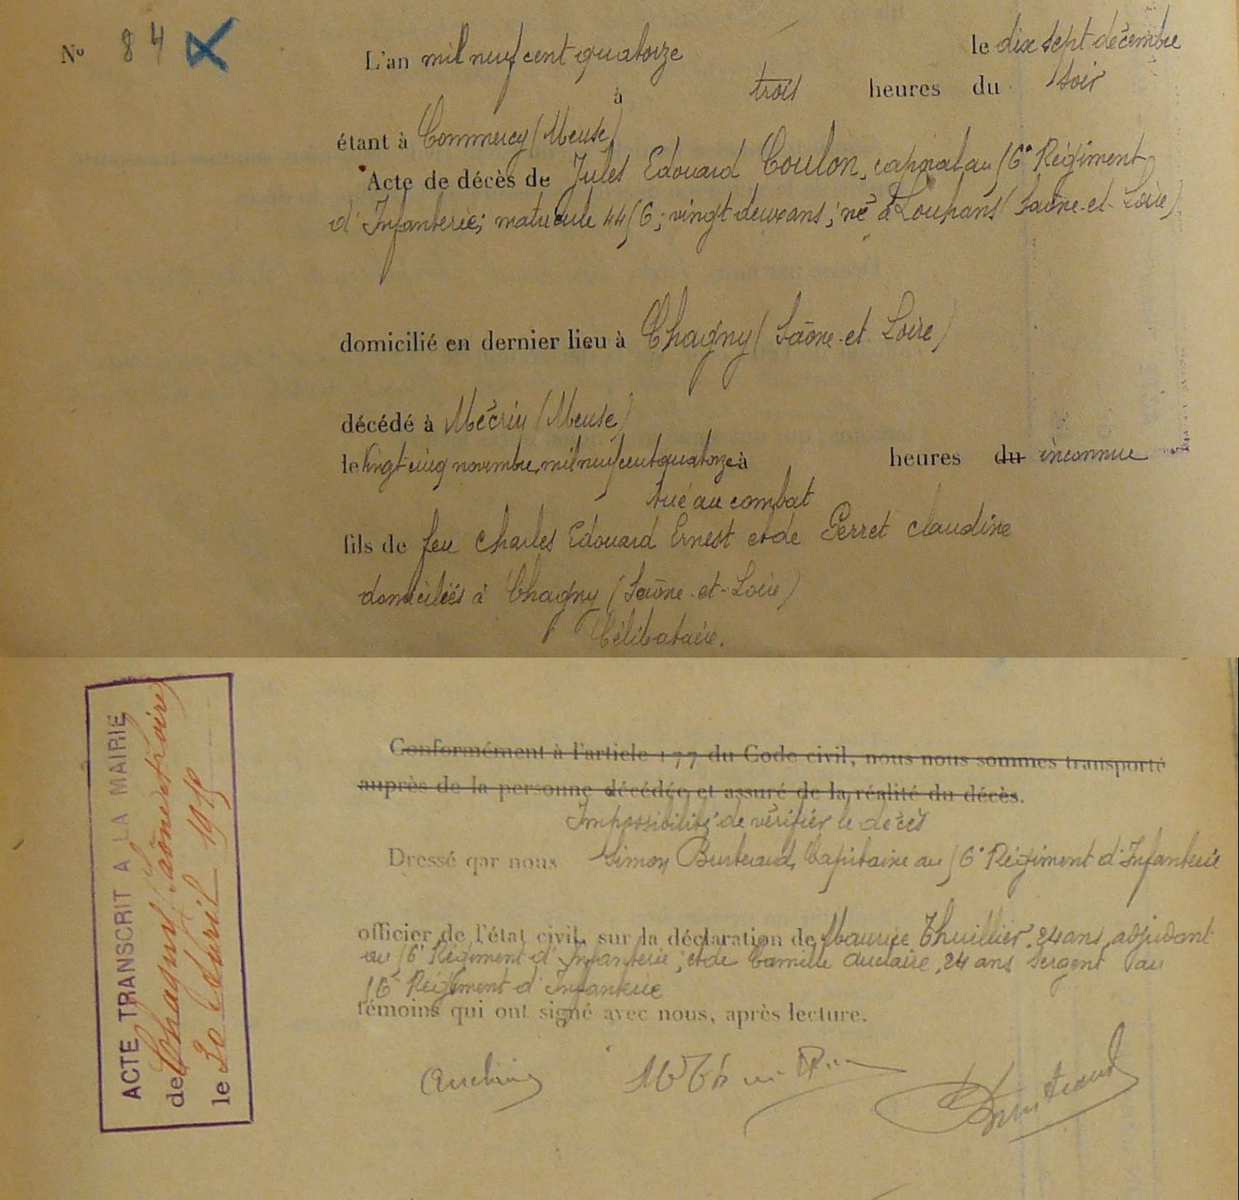 N° 84
L'an mil neuf cent quatorze le dix sept décembre
à trois heures du soir
étant à Commercy (Meuse)
Acte de décès de Jules Edouard Coulon, caporal au 56e Régiment
d'Infanterie; matricule 4456; vingt deux ans; né à Louhans (Saône-et-Loire)
domicilié en dernier lieu à Chagny (Saône-et-Loire)
décédé à Mécrin (Meuse)
le vingt-cinq novembre mil neuf cent quatorze à heures du inconnue
tué au combat
fils de feu Charles Edouard Ernest et de Perret Claudine
domiciliés à Chagny (Saône-et-Loire)
Célibataire.
ACTE TRANSCRIT A LA MAIRIE
de Chagny (Saône et Loire)
le 20 Avril 1915
Conformément à l'article 77 du Code civil, nous nous sommes transporté
auprès de la personne décédée et assuré de la réalité du décès.
Impossibilité de vérifier le décès
Dressé par nous Simon Capitaine au 56e Régiment d'Infanterie
officier de l'état civil, sur la déclaration de Maurice Thuillier, 24 ans, adjudant
au 56e Régiment d'Infanterie; et de Camille Auclaire, 24 ans sergent au
56e Régiment d'Infanterie
témoins qui ont signé avec nous, après lecture.